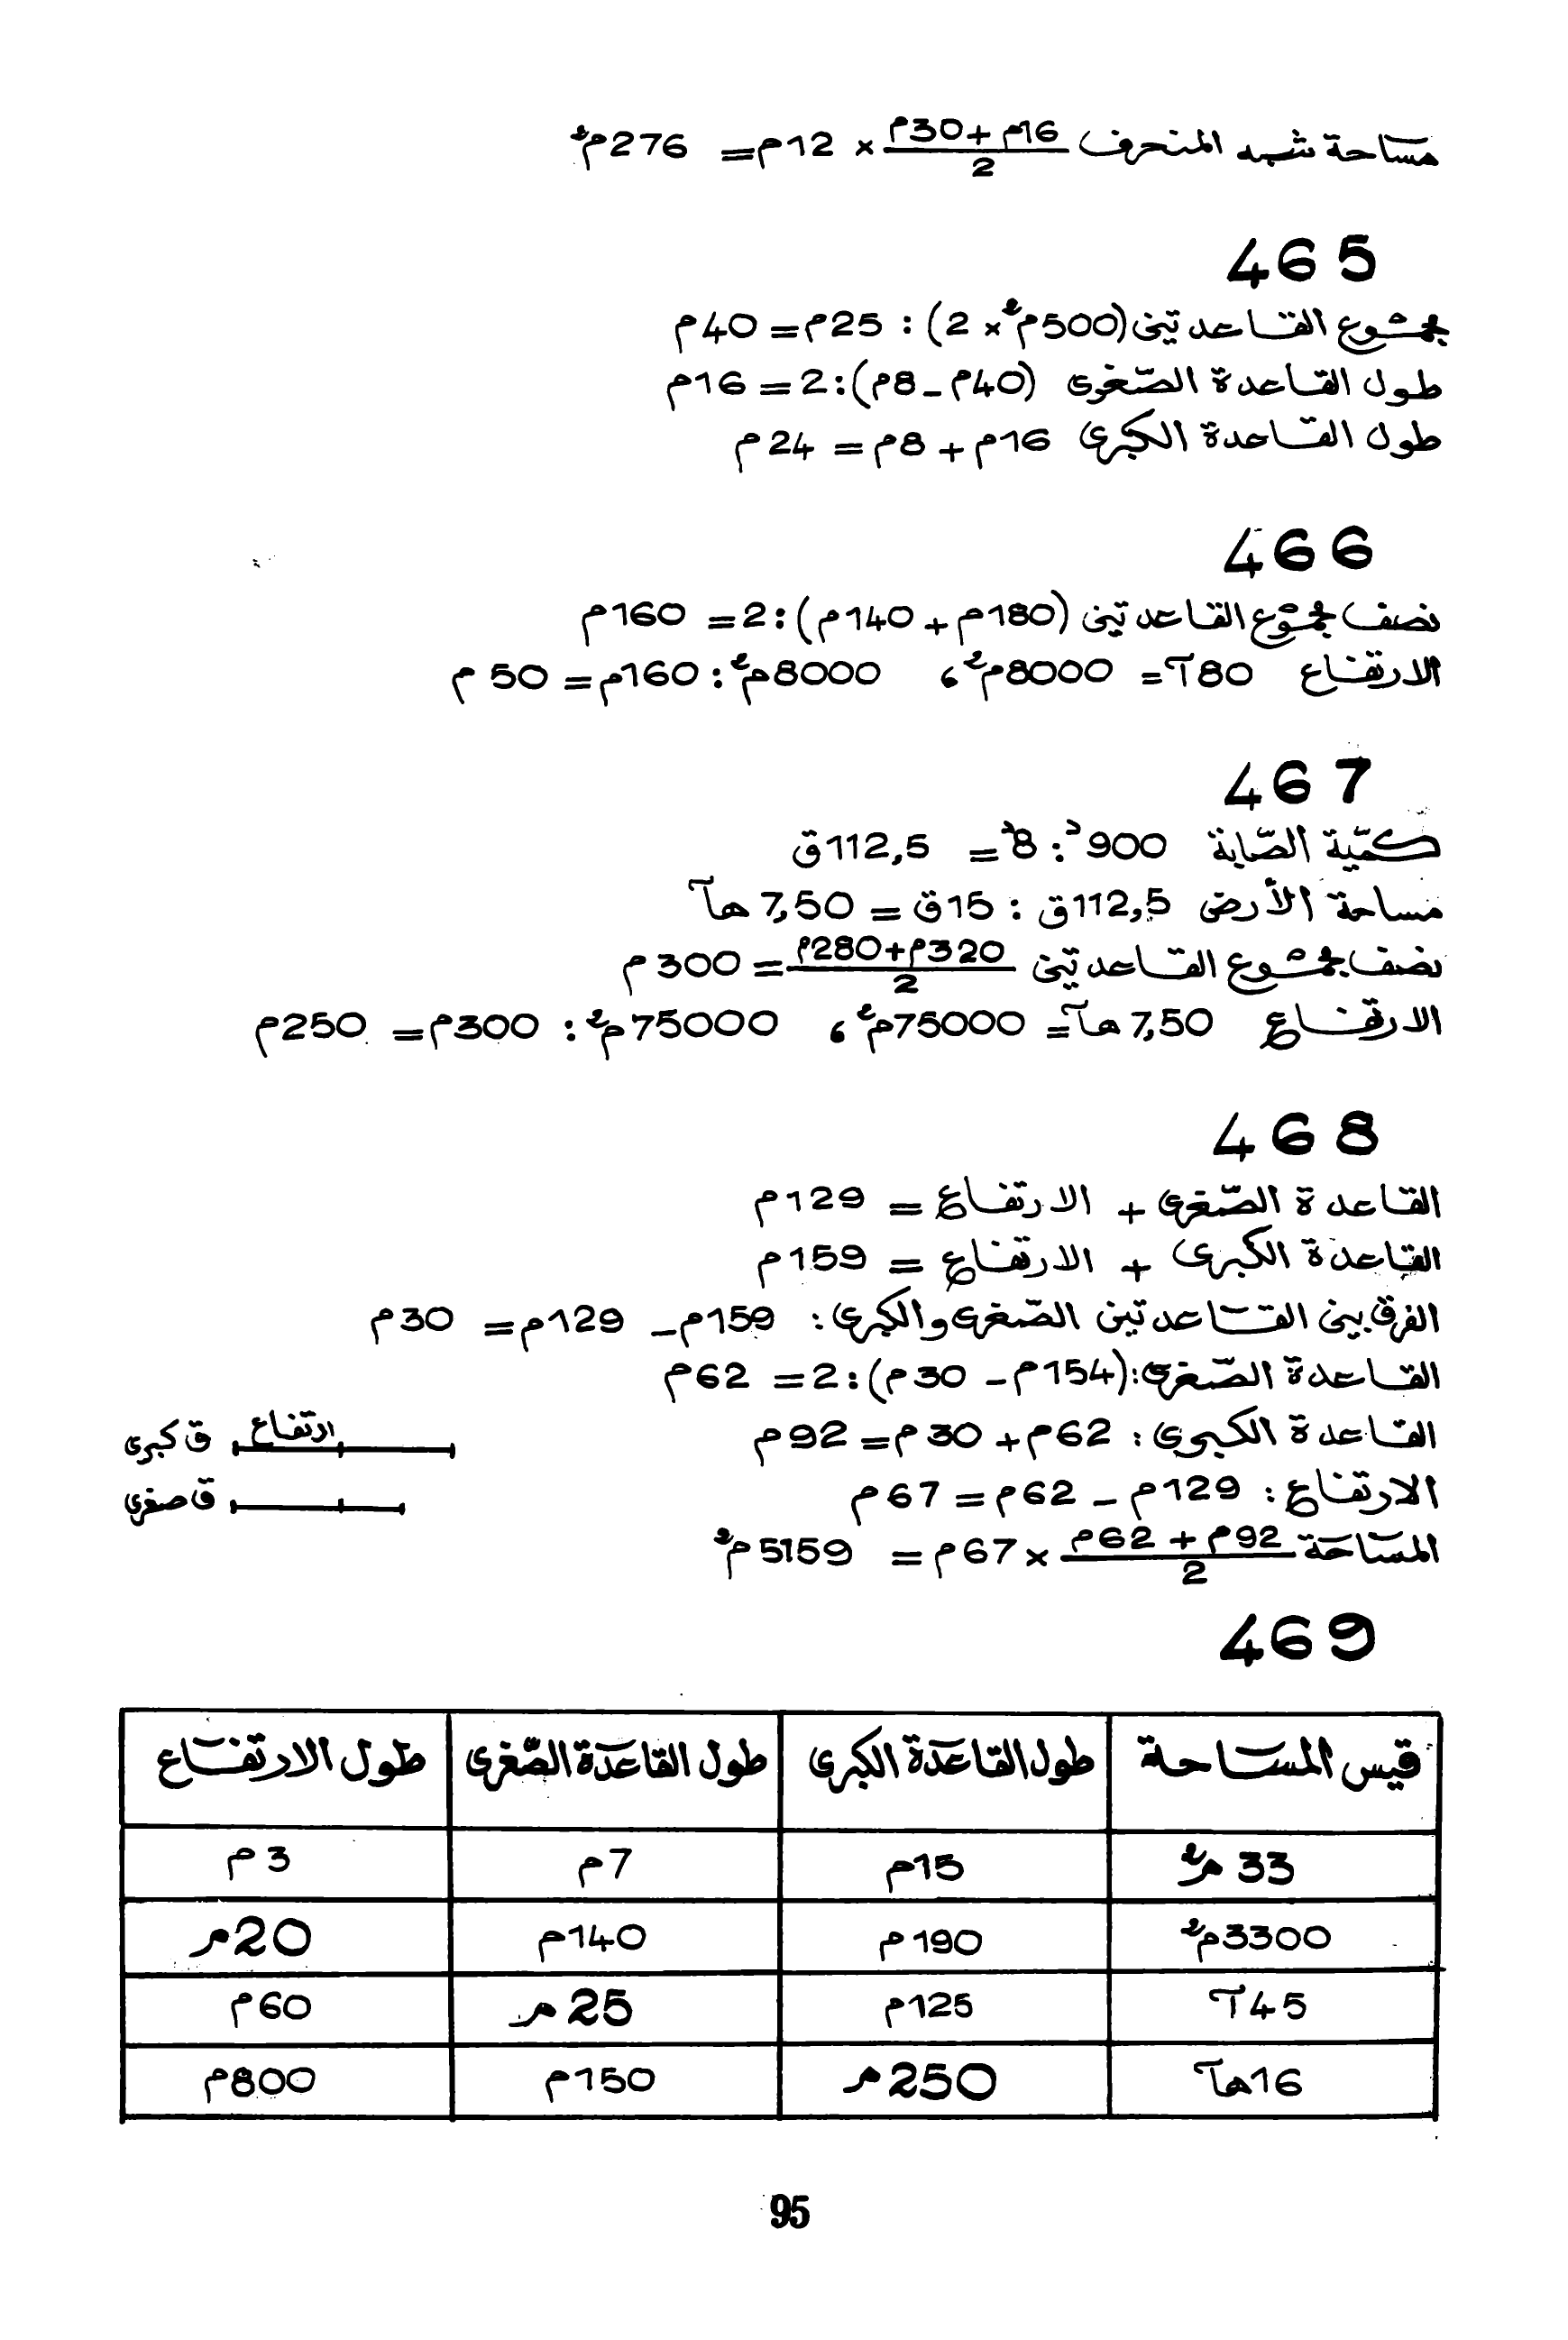 مساحة شبه المنحرف (16م + 30م)/2 × 12م = 276م²
465
مجموع القاعدتين (500م² × 2) : 25م = 40م
طول القاعدة الصّغرى (40م - 8م) : 2 = 16م
طول القاعدة الكبرى 16م + 8م = 24م
466
نصف مجموع القاعدتين (180م + 140م) : 2 = 160م
الارتفاع 80آ = 8000م²، 8000م² : 160م = 50م
467
كمّية الصّابة 900د : 8د = 112,5ق
مساحة الأرض 112,5ق : 15ق = 7,50 هآ
نصف مجموع القاعدتين (320م+280م)/2 = 300م
الارتفاع 7,50 هآ = 75000م²، 75000م² : 300م = 250م
468
القاعدة الصّغرى + الارتفاع = 129م
القاعدة الكبرى + الارتفاع = 159م
الفرق بين القاعدتين الصّغرى والكبرى : 159م - 129م = 30م
القاعدة الصّغرى : (154م - 30م) : 2 = 62م
القاعدة الكبرى : 62م + 30م = 92م
ارتفاع ق كبرى
الارتفاع : 129م - 62م = 67م
ق صغرى
المساحة (92م + 62م)/2 × 67م = 5159م²
469
قيس المساحة | طول القاعدة الكبرى | طول القاعدة الصّغرى | طول الارتفاع
33م² | 15م | 7م | 3م
3300م² | 190م | 140م | 20م
45آ | 125م | 25م | 60م
16هآ | 250م | 150م | 800م
95